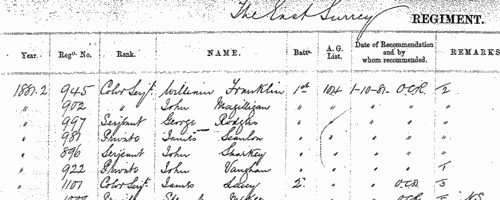 The East Surrey REGIMENT.
Year. Regtl. No. Rank. NAME. Batn. A. G. List. Date of Recommendation and by whom recommended. REMARKS
1881-2 945 Color Serjt. William Franklin 1st 104 1-10-81- O.C.R. 2
" 902 " John Magilligan " " " " "
" 997 Serjeant George Rodgers " " " " "
" 987 Private James Scanlon " " " "
" 896 Serjeant John Sharkey " " " "
" 922 Private John Vaughan " " " " 1
" 1101 Color Serjt. James Lacey 2. " " O.C.R. 3